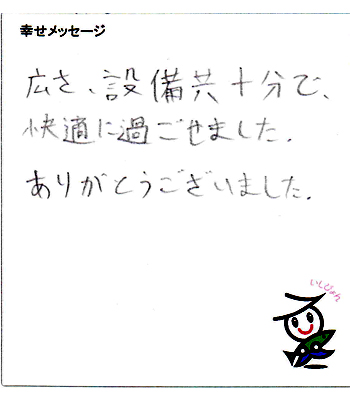 幸せメッセージ
広さ、設備共十分で、
快適に過ごせました。
ありがとうございました。